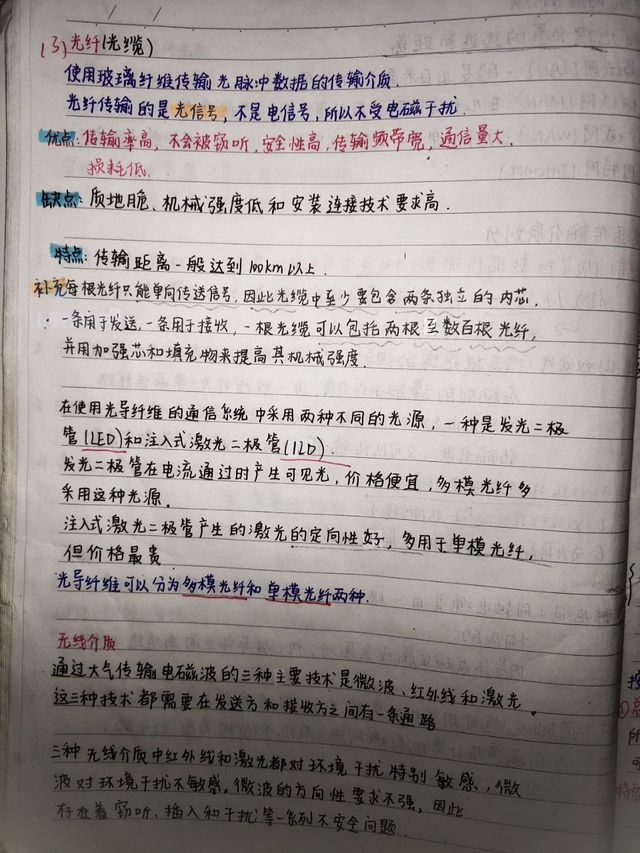 (3) 光纤(光缆)
使用玻璃纤维传输光脉冲数据的传输介质.
光纤传输的是光信号,不是电信号,所以不受电磁干扰.
优点:传输率高,不会被窃听,安全性高,传输频带宽,通信量大.
损耗低.
缺点:质地脆、机械强度低和安装连接技术要求高.
特点:传输距离一般达到100km以上.
补充每根光纤只能单向传送信号,因此光缆中至少要包含两条独立的内芯,
一条用于发送,一条用于接收,一根光缆可以包括两根至数百根光纤,
并用加强芯和填充物来提高其机械强度.
在使用光导纤维的通信系统中采用两种不同的光源,一种是发光二极
管(LED)和注入式激光二极管(ILD).
发光二极管在电流通过时产生可见光,价格便宜,多模光纤多
采用这种光源.
注入式激光二极管产生的激光的定向性好,多用于单模光纤,
但价格最贵.
光导纤维可以分为多模光纤和单模光纤两种.
无线介质
通过大气传输电磁波的三种主要技术是微波、红外线和激光。
这三种技术都需要在发送方和接收方之间有一条通路
三种无线介质中红外线和激光都对环境干扰特别敏感,微
波对环境干扰不敏感,微波的方向性要求不强,因此
存在着窃听、插入和干扰等一系列不安全问题.